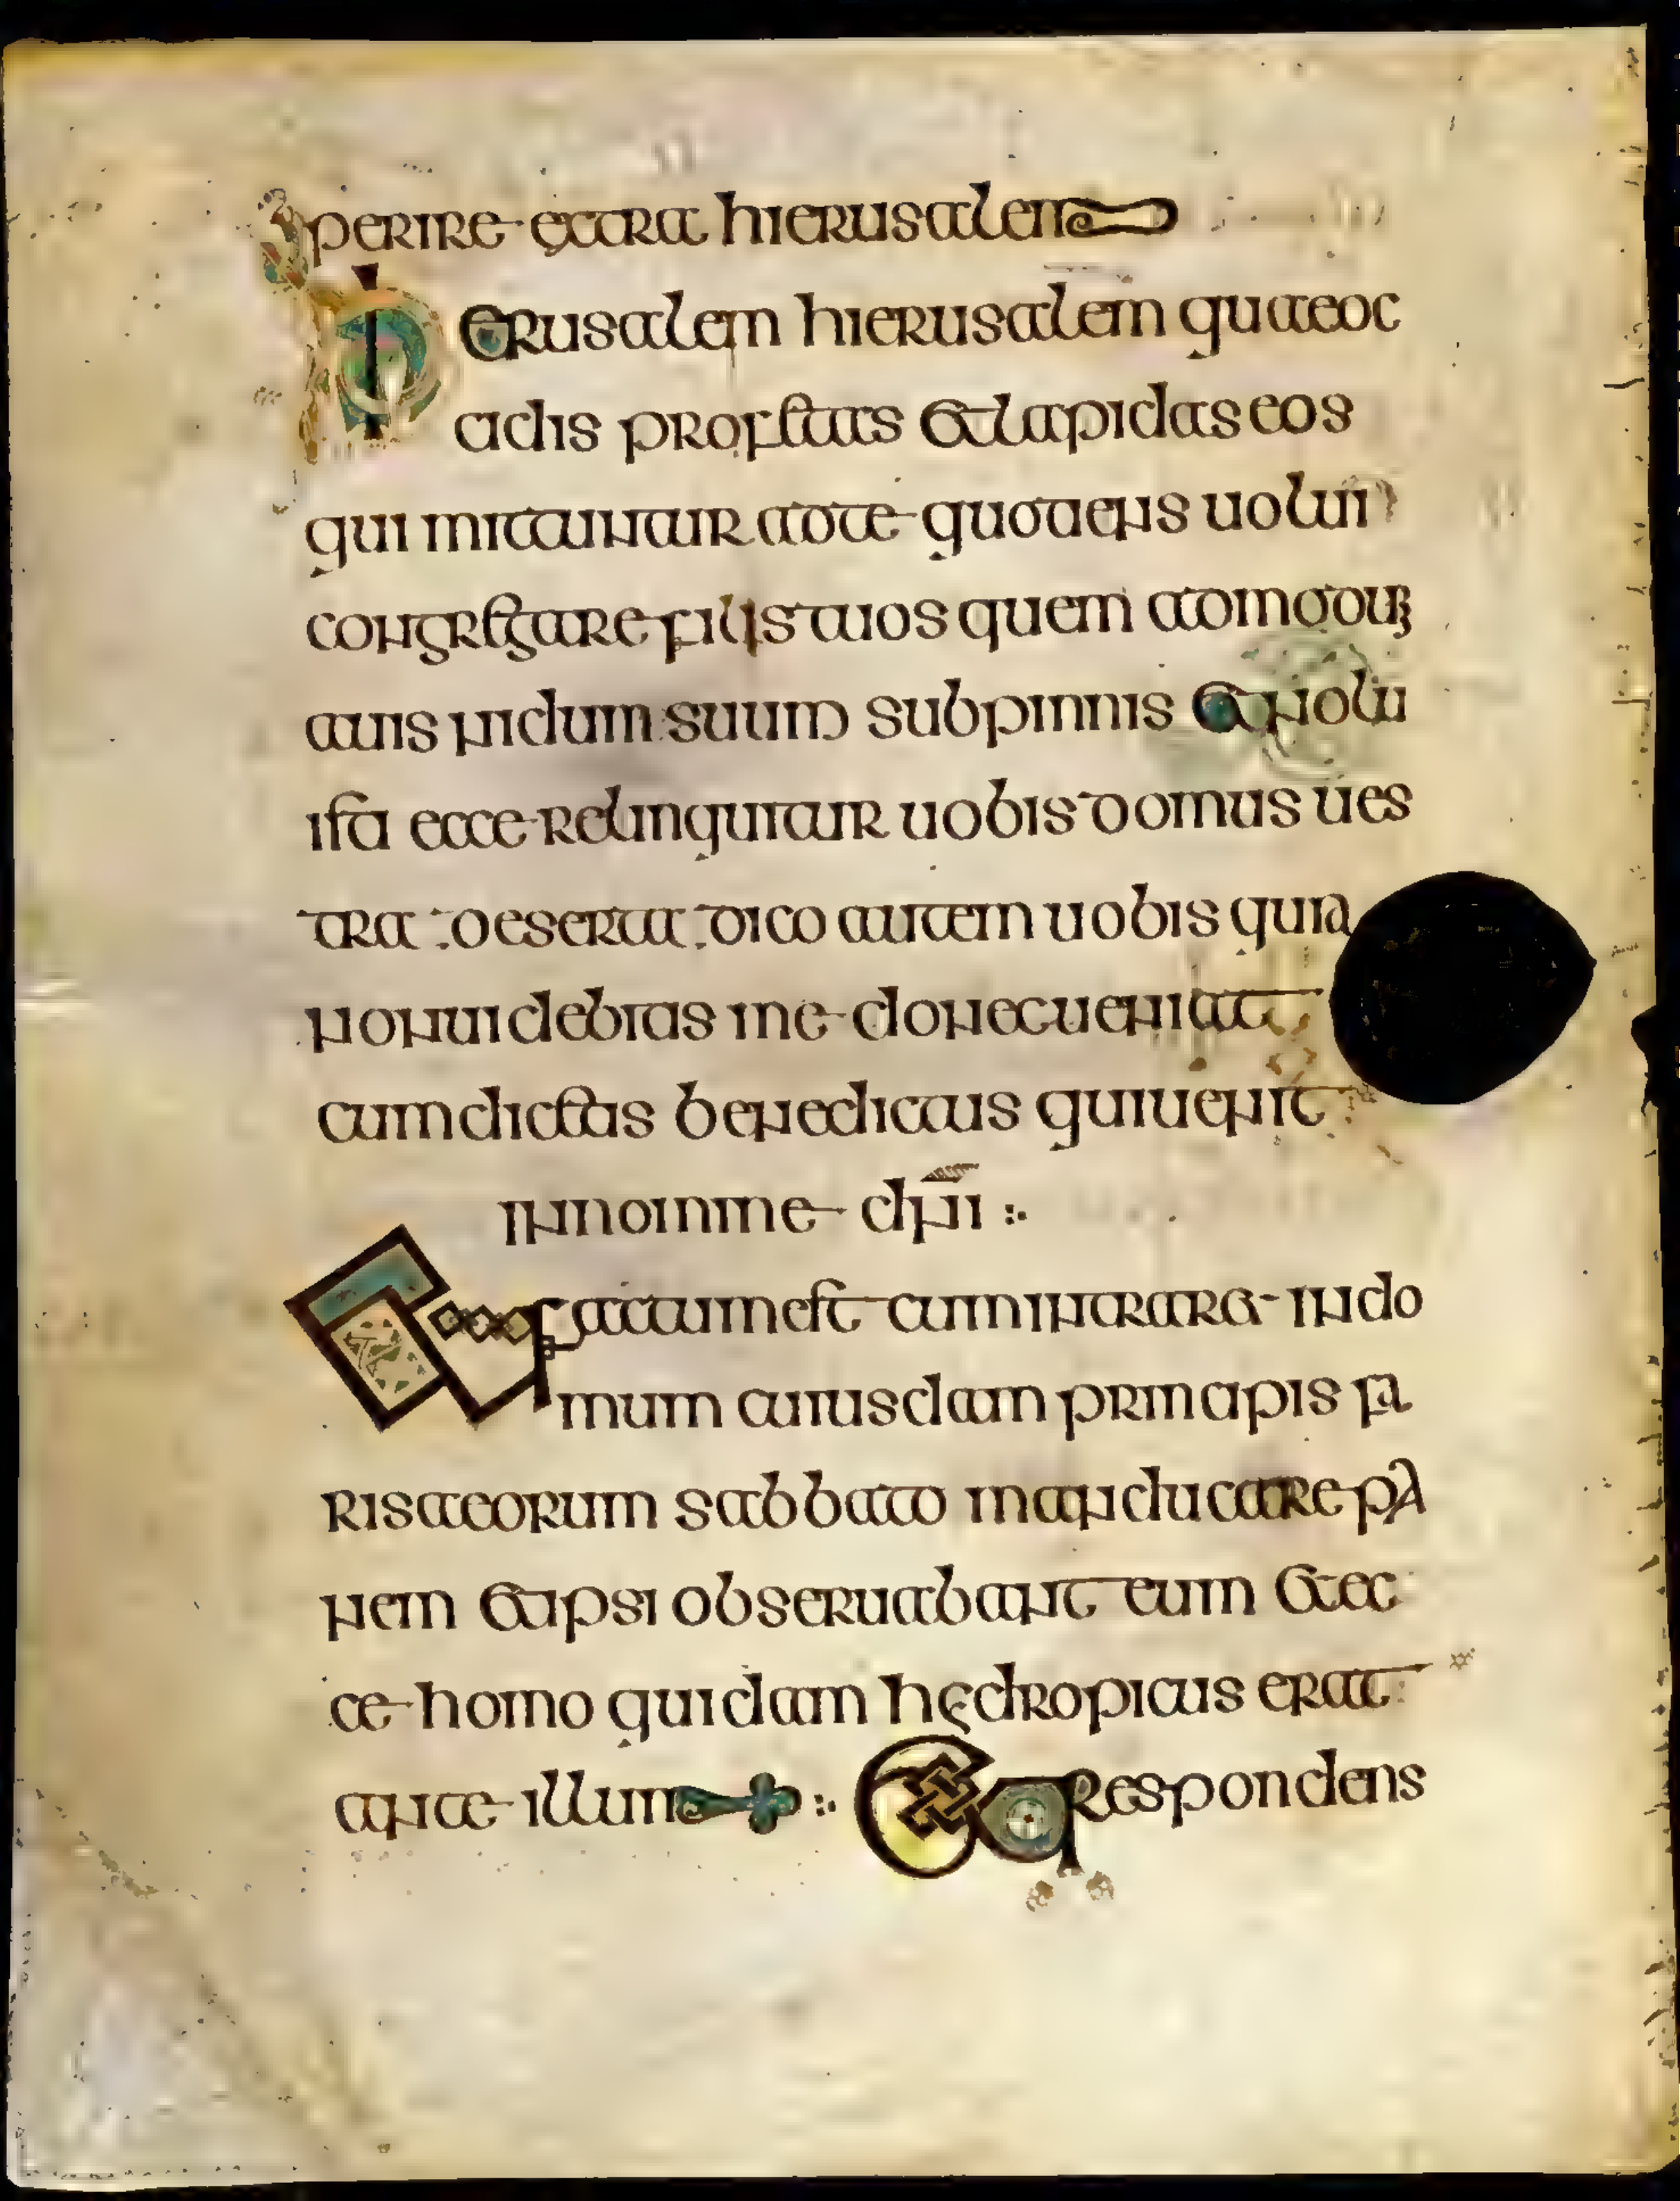 perire extra hierusalem
Hierusalem hierusalem quaeoc
cidis profetas et lapidas eos
qui mittuntur adte quotiens uolui
congregare filiis tuos quem admodū
auis nidum suum subpinnis et nolu
isti ecce relinquitur uobis domus ues
tra deserta dico autem uobis quia
nonuidebitas me donecueniat
cumdicetas benedictus quiuenit
innomine dni :.
Et factumest cumintraret indo
mum cuiusdam principis fa
risaeorum sabbato manducare pa
nem et ipsi obseruabant eum et ec
ce homo quidam hędropicus erat
ante illum :. Et respondens